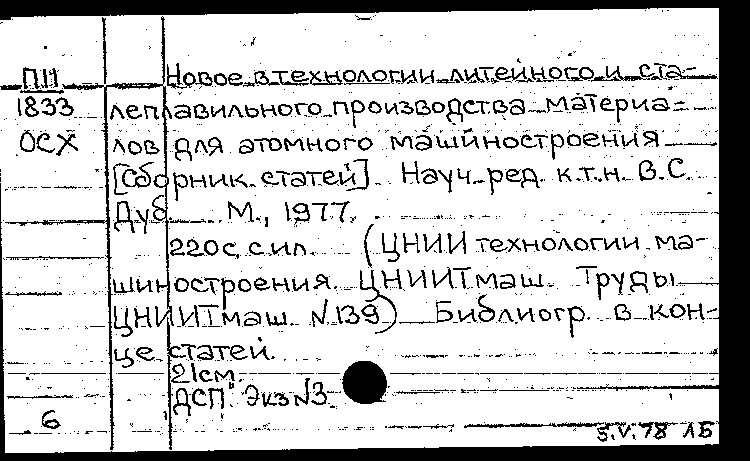 П11 Новое в технологии литейного и ста-
1833 леплавильного производства материа-
ОСХ лов для атомного машиностроения
[Сборник статей]. Науч. ред. к.т.н. В.С.
Дуб М., 1977.
220с. с ил. (ЦНИИ технологии ма-
шиностроения. ЦНИИТмаш. Труды
ЦНИИТмаш. N139) Библиогр. в кон-
це статей.
21см.
ДСП. Экз N3.
6
5.V.78 ЛБ